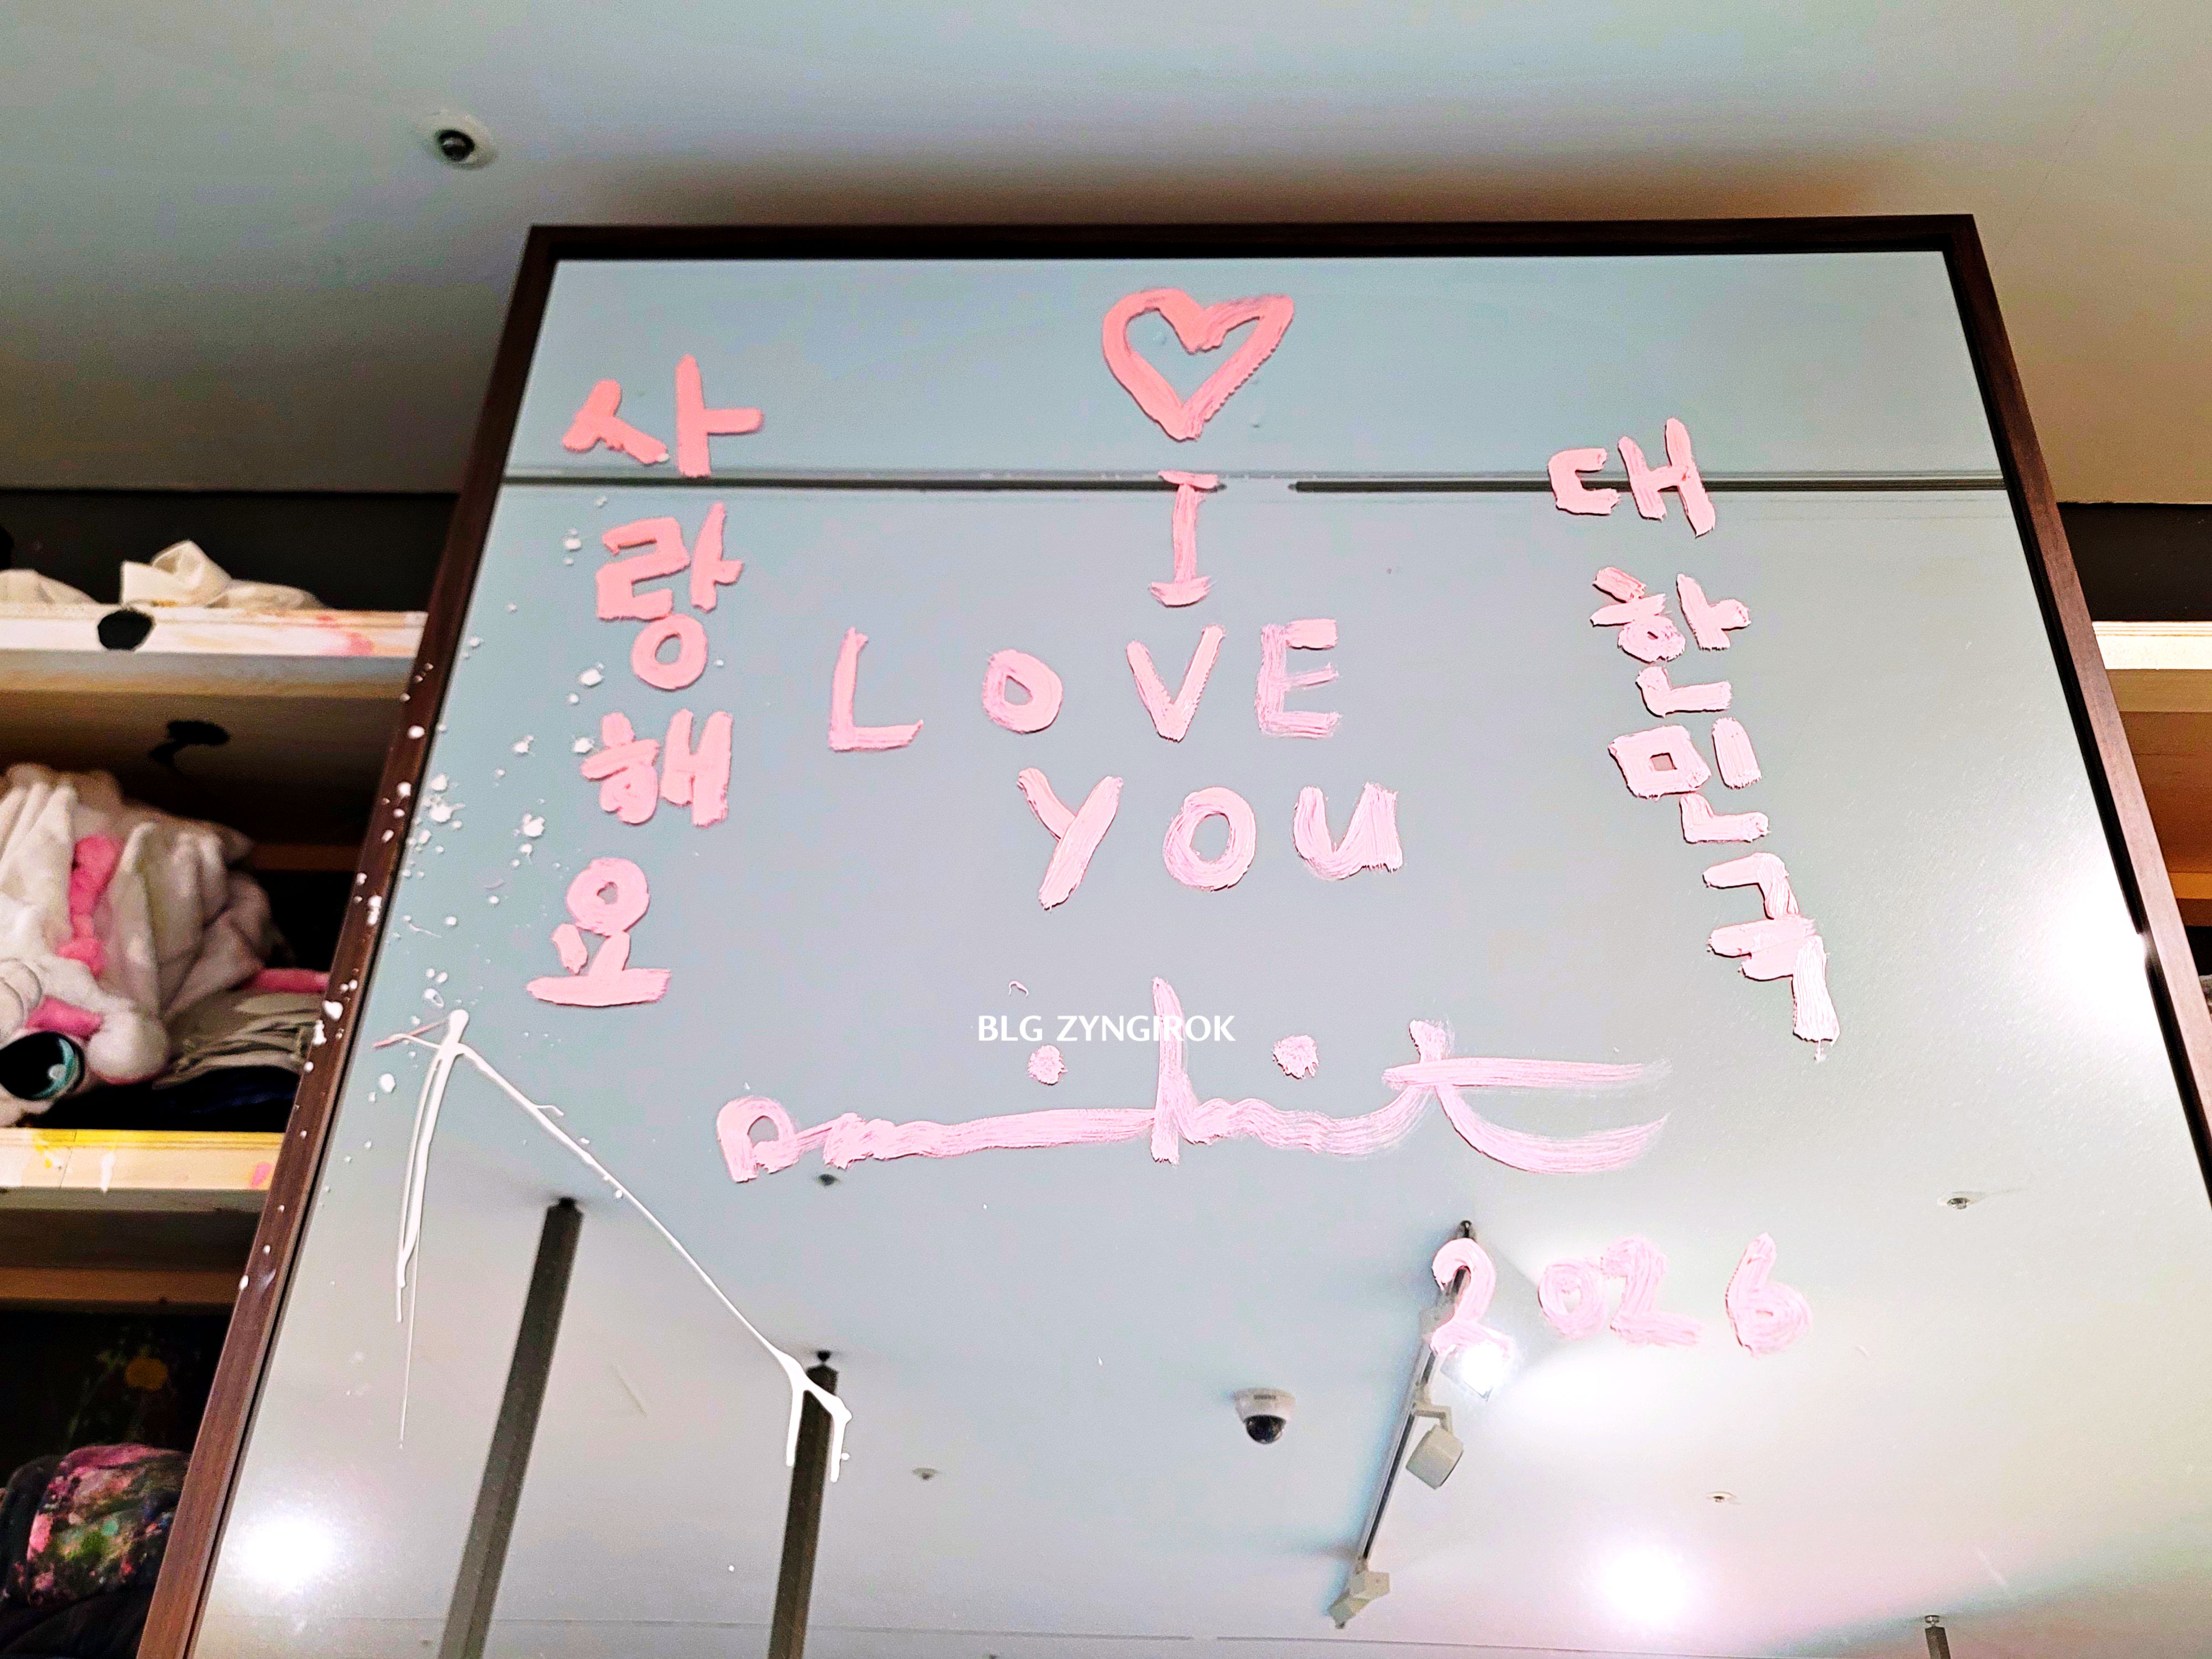 사랑해요
I
LOVE
YOU
대한민국
BLG ZYNGIROK
2026